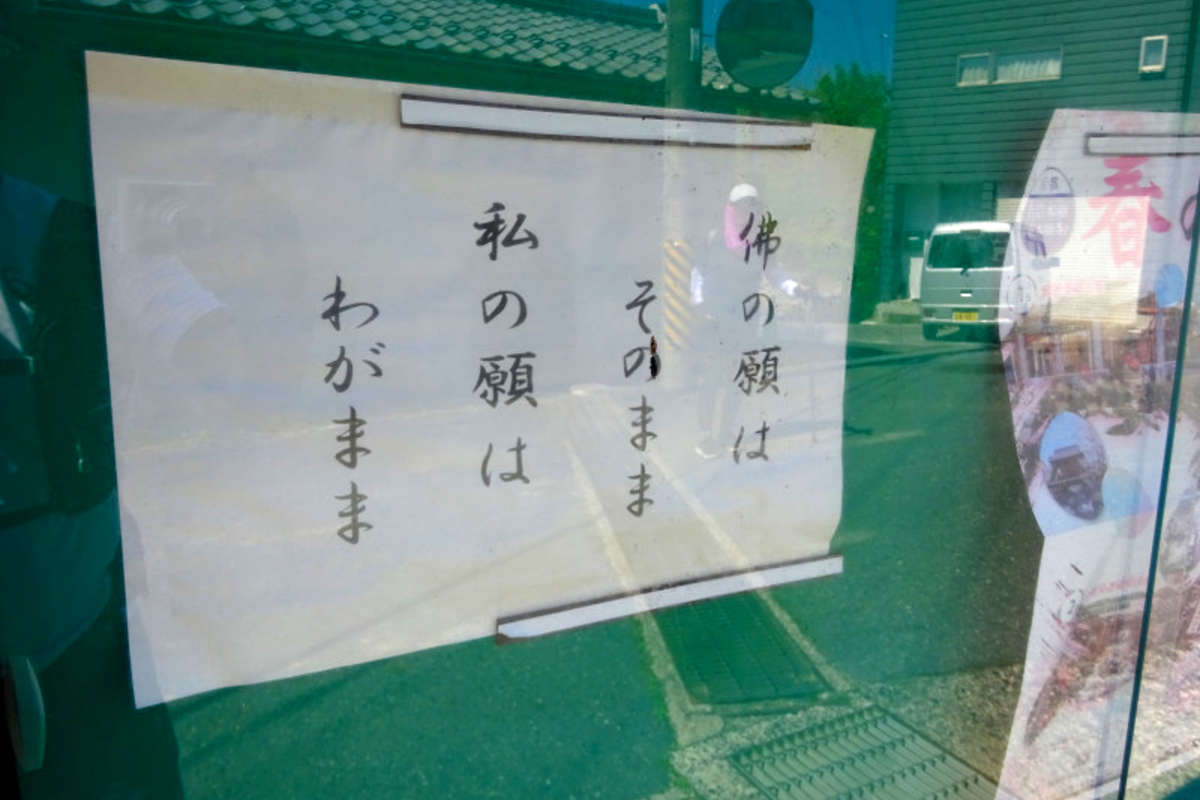 佛の願は
そのまま
私の願は
わがまま
春の